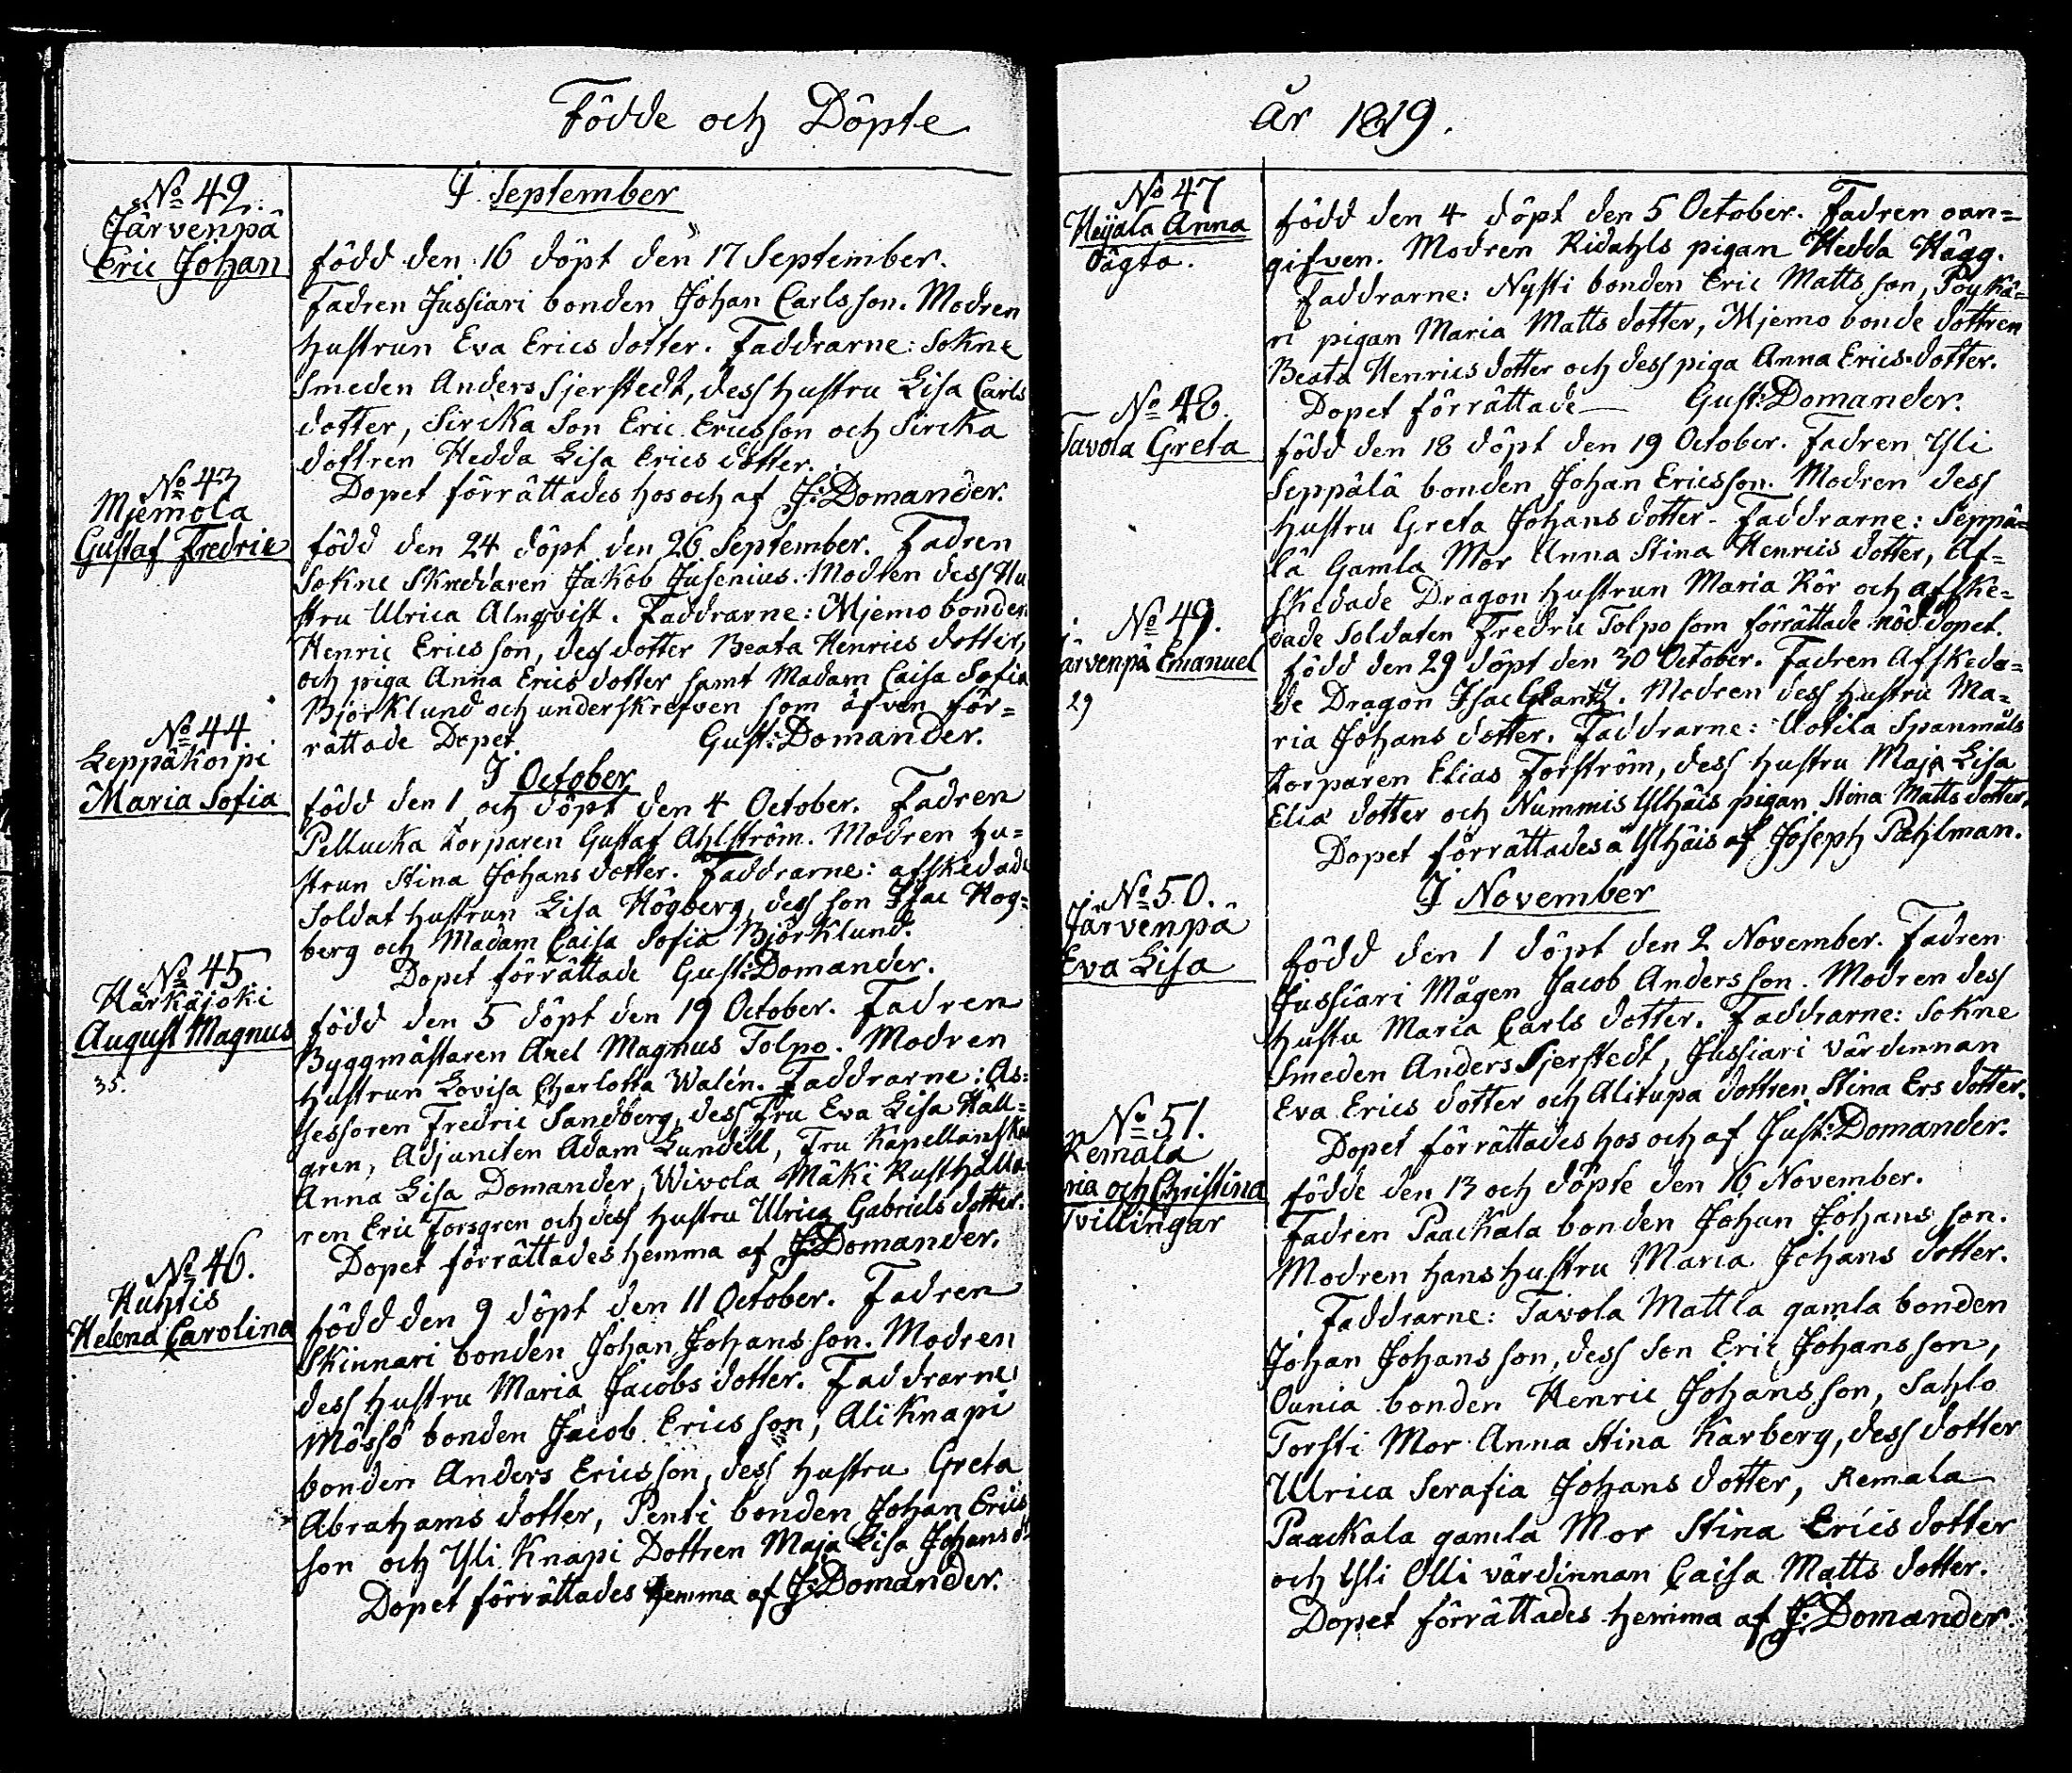 Födde och Döpte
No 42.
Järvenpä
Eric Johan
I September
född den 16 döpt den 17 September.
Fadren Jussiari bonden Johan Carlsson. Modren
hustrun Eva Ericsdotter. Faddrarne: Sokne
Smeden Anders Sjerstedt, dess hustru Lisa Carls
dotter, Sircka Son Eric Ericsson och Sircka
dottren Hedda Lisa Ericsdotter.
Dopet förrättades hos och af J: Domander.
No 43
Mjemola
Gustaf Fredric
född den 24 döpt den 26 September. Fadren
Sokne Skreddaren Jakob Jusenius. Modren dess Hu
stru Ulrica Almqvist. Faddrarne: Mjemo bonden
Henric Ericsson, des dotter Beata Henricsdotter,
och piga Anna Ericsdotter samt Madam Caisa Sofia
Björklund och underskrefven som äfven för=
rättade Dopet. Gust: Domander.
No 44
Leppäkorpi
Maria Sofia
I October
född den 1 och döpt den 4 October. Fadren
Pellucka torparen Gustaf Ahlström. Modren hu=
strun Stina Johansdotter. Faddrarne: afskedade
Soldat hustrun Lisa Högberg, dess son Isac Hog=
berg och Madam Caisa Sofia Björklund.
Dopet förrättade Gust: Domander.
No 45
Härkäjoki
August Magnus
35.
född den 5 döpt den 19 October. Fadren
Byggmästaren Axel Magnus Tolpo. Modren
hustrun Lovisa Charlotta Walén. Faddrarne: As=
sessoren Fredric Sandberg, dess Fru Eva Lisa Häll=
gren, Adjuncten Adam Lundell, Fru Kapellanskan
Anna Lisa Domander, Wivola Mäki Rusthålla
ren Eric Forsgren och dess hustru Ulrica Gabrielsdotter.
Dopet förrättades hemma af J: Domander.
No 46.
Huhtis
Helena Carolina
född den 9 döpt den 11 October. Fadren
Skinnari bonden Johan Johansson. Modren
dess hustru Maria Jacobsdotter. Faddrarne
Mössö bonden Jacob Ericsson, Ali Knapi
bonden Anders Ericsson, dess hustru Greta
Abrahamsdotter, Penti bonden Johan Erics
son och Yli Knapi Dottren Maja Lisa Johans dr
Dopet förrättades hemma af J: Domander.
År 1819.
No 47
Heijala Anna
Oägta.
född den 4 döpt den 5 October. Fadren oan=
gifven. Modren Ridahls pigan Hedda Hägg.
Faddrarne: Nysti bonden Eric Mattsson, Poykä=
ri pigan Maria Mattsdotter, Mjemo bonde dottren
Beata Henricsdotter och dess piga Anna Ericsdotter.
Dopet förrättade Gust: Domander.
No 48.
Tavola Greta
född den 18 döpt den 19 October. Fadren Yli
Seppälä bonden Johan Ericsson. Modren dess
hustru Greta Johansdotter. Faddrarne: Seppä=
lä Gamla Mor Anna Stina Henricsdotter, Af=
skedade Dragon hustrun Maria Rör och afske=
dade Soldaten Fredric Tolpo som förrättade nöddopet.
No 49.
ärvenpä Emanuel
29
född den 29 döpt den 30 October. Fadren Afskeda=
de Dragon Isac Glantz. Modren dess hustru Ma=
ria Johansdotter. Faddrarne: Uotila Spanmåls
torparen Elias Forström, dess hustru Maja Lisa
Elia dotter och Nummis Ylhäis pigan Stina Mattsdotter,
Dopet förrättades å Ylhäis af Joseph Pahlman.
I November
No 50.
Järvenpä
Eva Lisa
född den 1 döpt den 2 November. Fadren
Jussiari Mågen Jacob Andersson. Modren dess
hustu Maria Carlsdotter. Faddrarne: Sokne
Smeden Anders Sjerstedt, Jussiari värdinnan
Eva Ericsdotter och Alitupa dottren Stina Ersdotter.
Dopet förrättades hos och af Just: Domander.
No 51.
Remala
ria och Christina
Tvillingar
födde den 13 och döpte den 16 November.
Fadren Paackala bonden Johan Johansson.
Modren hans hustru Maria Johansdotter.
Faddrarne: Tavola Mattla gamla bonden
Johan Johansson, dess son Eric Johansson,
Ounia bonden Henric Johansson, Sahlo
Torsti Mor Anna Stina Karberg, dess dotter
Ulrica Serafia Johansdotter, Remala
Paackala gamla Mor Stina Ericsdotter
och Yli Olli värdinnan Caisa Mattsdotter.
Dopet förrättades hemma af J: Domander.